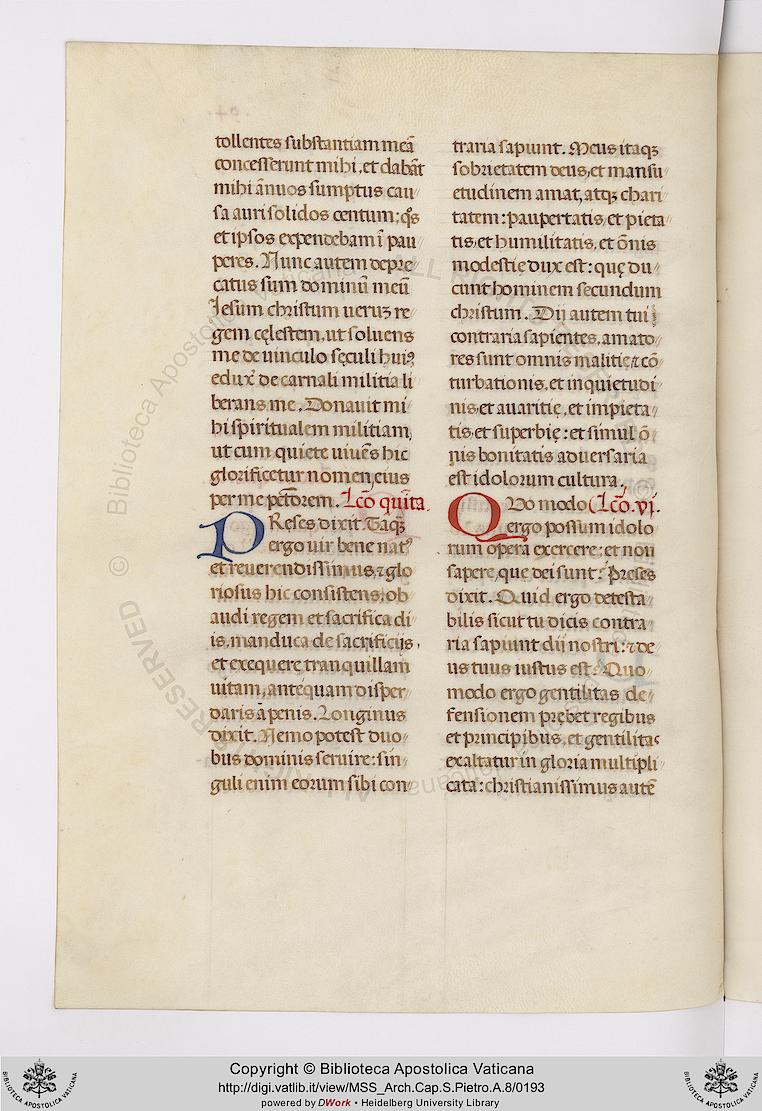 tollentes substantiam meā
concesserunt mihi, et dabāt
mihi ānuos sumptus cau
sa auri solidos centum; q̄s
et ipsos expendebam ī pau
peres. Nunc autem depre
catus sum dominū meū
Iesum christum ueruʒ re
gem cęlestem, ut soluens
me de uinculo sęculi huiꝰ
edux̄ de carnali militia li
berans me. Donauit mi
hi spiritualem militiam,
ut cum quiete uiuēs hic
glorificetur nomen eius
per me peccōrem. Lcō quīta.
PReses dixit. Itaqʒ
ergo uir bene natꝰ
et reuerendissimus, ⁊ glo
riosus hic consistens, ob
audi regem et sacrifica di
is, manduca de sacrificijs,
et exequere tranquillam
uitam, antequam disper
daris ā penis. Longinus
dixit. Nemo potest duo
bus dominis seruire: sin
guli enim eorum sibi con
traria sapiunt. Meus itaqʒ
sobrietatem deus, et mansu
etudinem amat, atqʒ chari
tatem: paupertatis, et pieta
tis, et humilitatis, et ōnis
modestie dux est: quę du
cunt hominem secundum
christum. Dij autem tui
contraria sapientes, amato
res sunt omnis malitie, ⁊ cō
turbationis, et inquietudi
nis, et auaritię, et impieta
tis, et superbię: et simul ō
nis bonitatis aduersaria
est idolorum cultura.
QUo modo Lcō. vj.
ergo possum idolo
rum opera exercere: et non
sapere, que dei sunt? Preses
dixit. Quid ergo detesta
bilis sicut tu dicis contra
ria sapiunt dij nostri: ⁊ de
us tuus iustus est. Quo
modo ergo gentilitas de
fensionem prębet regibus
et principibus, et gentilitas
exaltatur in gloria multipli
cata: christianissimus autē
© Biblioteca Apostolica Vaticana
ALL RIGHTS RESERVED
Copyright © Biblioteca Apostolica Vaticana
http://digi.vatlib.it/view/MSS_Arch.Cap.S.Pietro.A.8/0193
powered by DWork • Heidelberg University Library
BIBLIOTECA APOSTOLICA VATICANA
BIBLIOTECA APOSTOLICA VATICANA